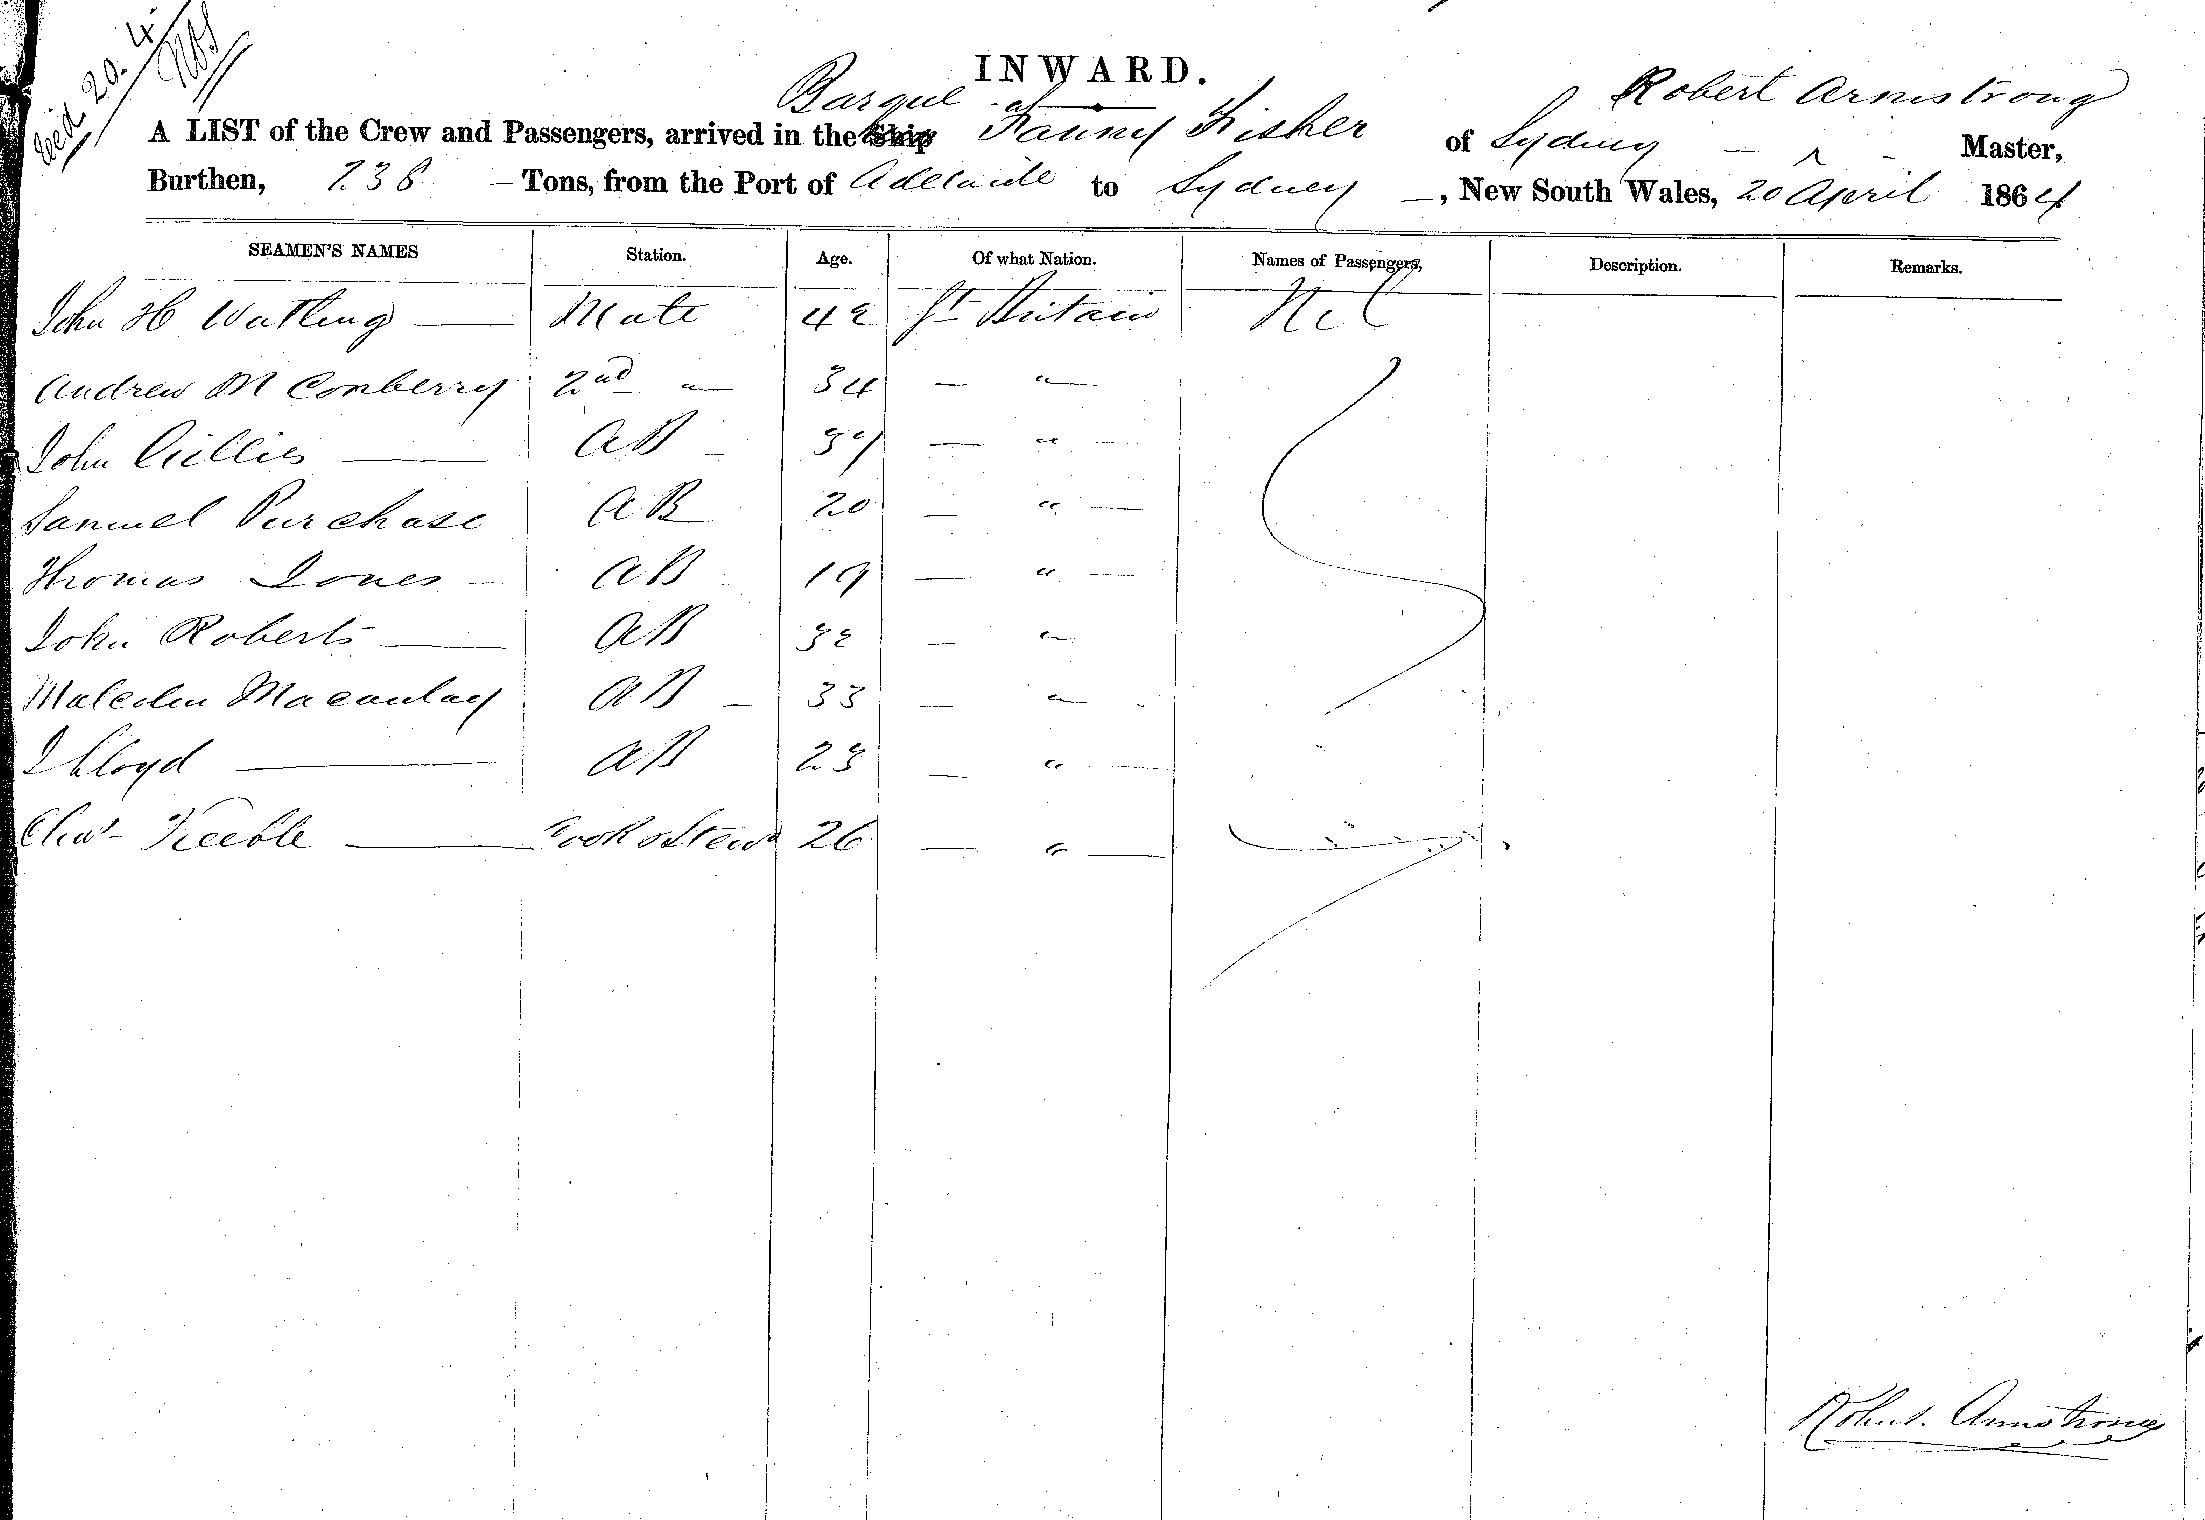 20.4
INWARD.
Barque Robert Armstrong
A LIST of the Crew and Passengers, arrived in the Ship Fanny Fisher of Sydney Master,
Burthen, 238 Tons, from the Port of Adelaide to Sydney, New South Wales, 20 April 1864
SEAMEN'S NAMES Station. Age. Of what Nation. Names of Passengers, Description. Remarks.
John H Watling — Mate 42 Gt Britain Nil
Andrew M Conberry 2nd " 34 — " —
John Gillies — AB 37 — " —
Samuel Purchase AB 20 — " —
Thomas Jones AB 19 — " —
John Roberts — AB 32 — "
Malcolm Macaulay AB 33 — "
J Lloyd — AB 23 — " —
Chas Keeble — Cook & Stewd 26 — " —
Robert Armstrong